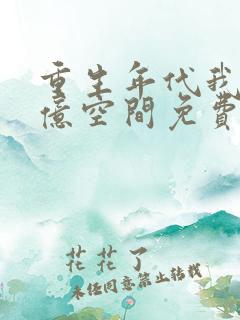 重生年代我
億空間免費
花花了
未經同意禁止轉載